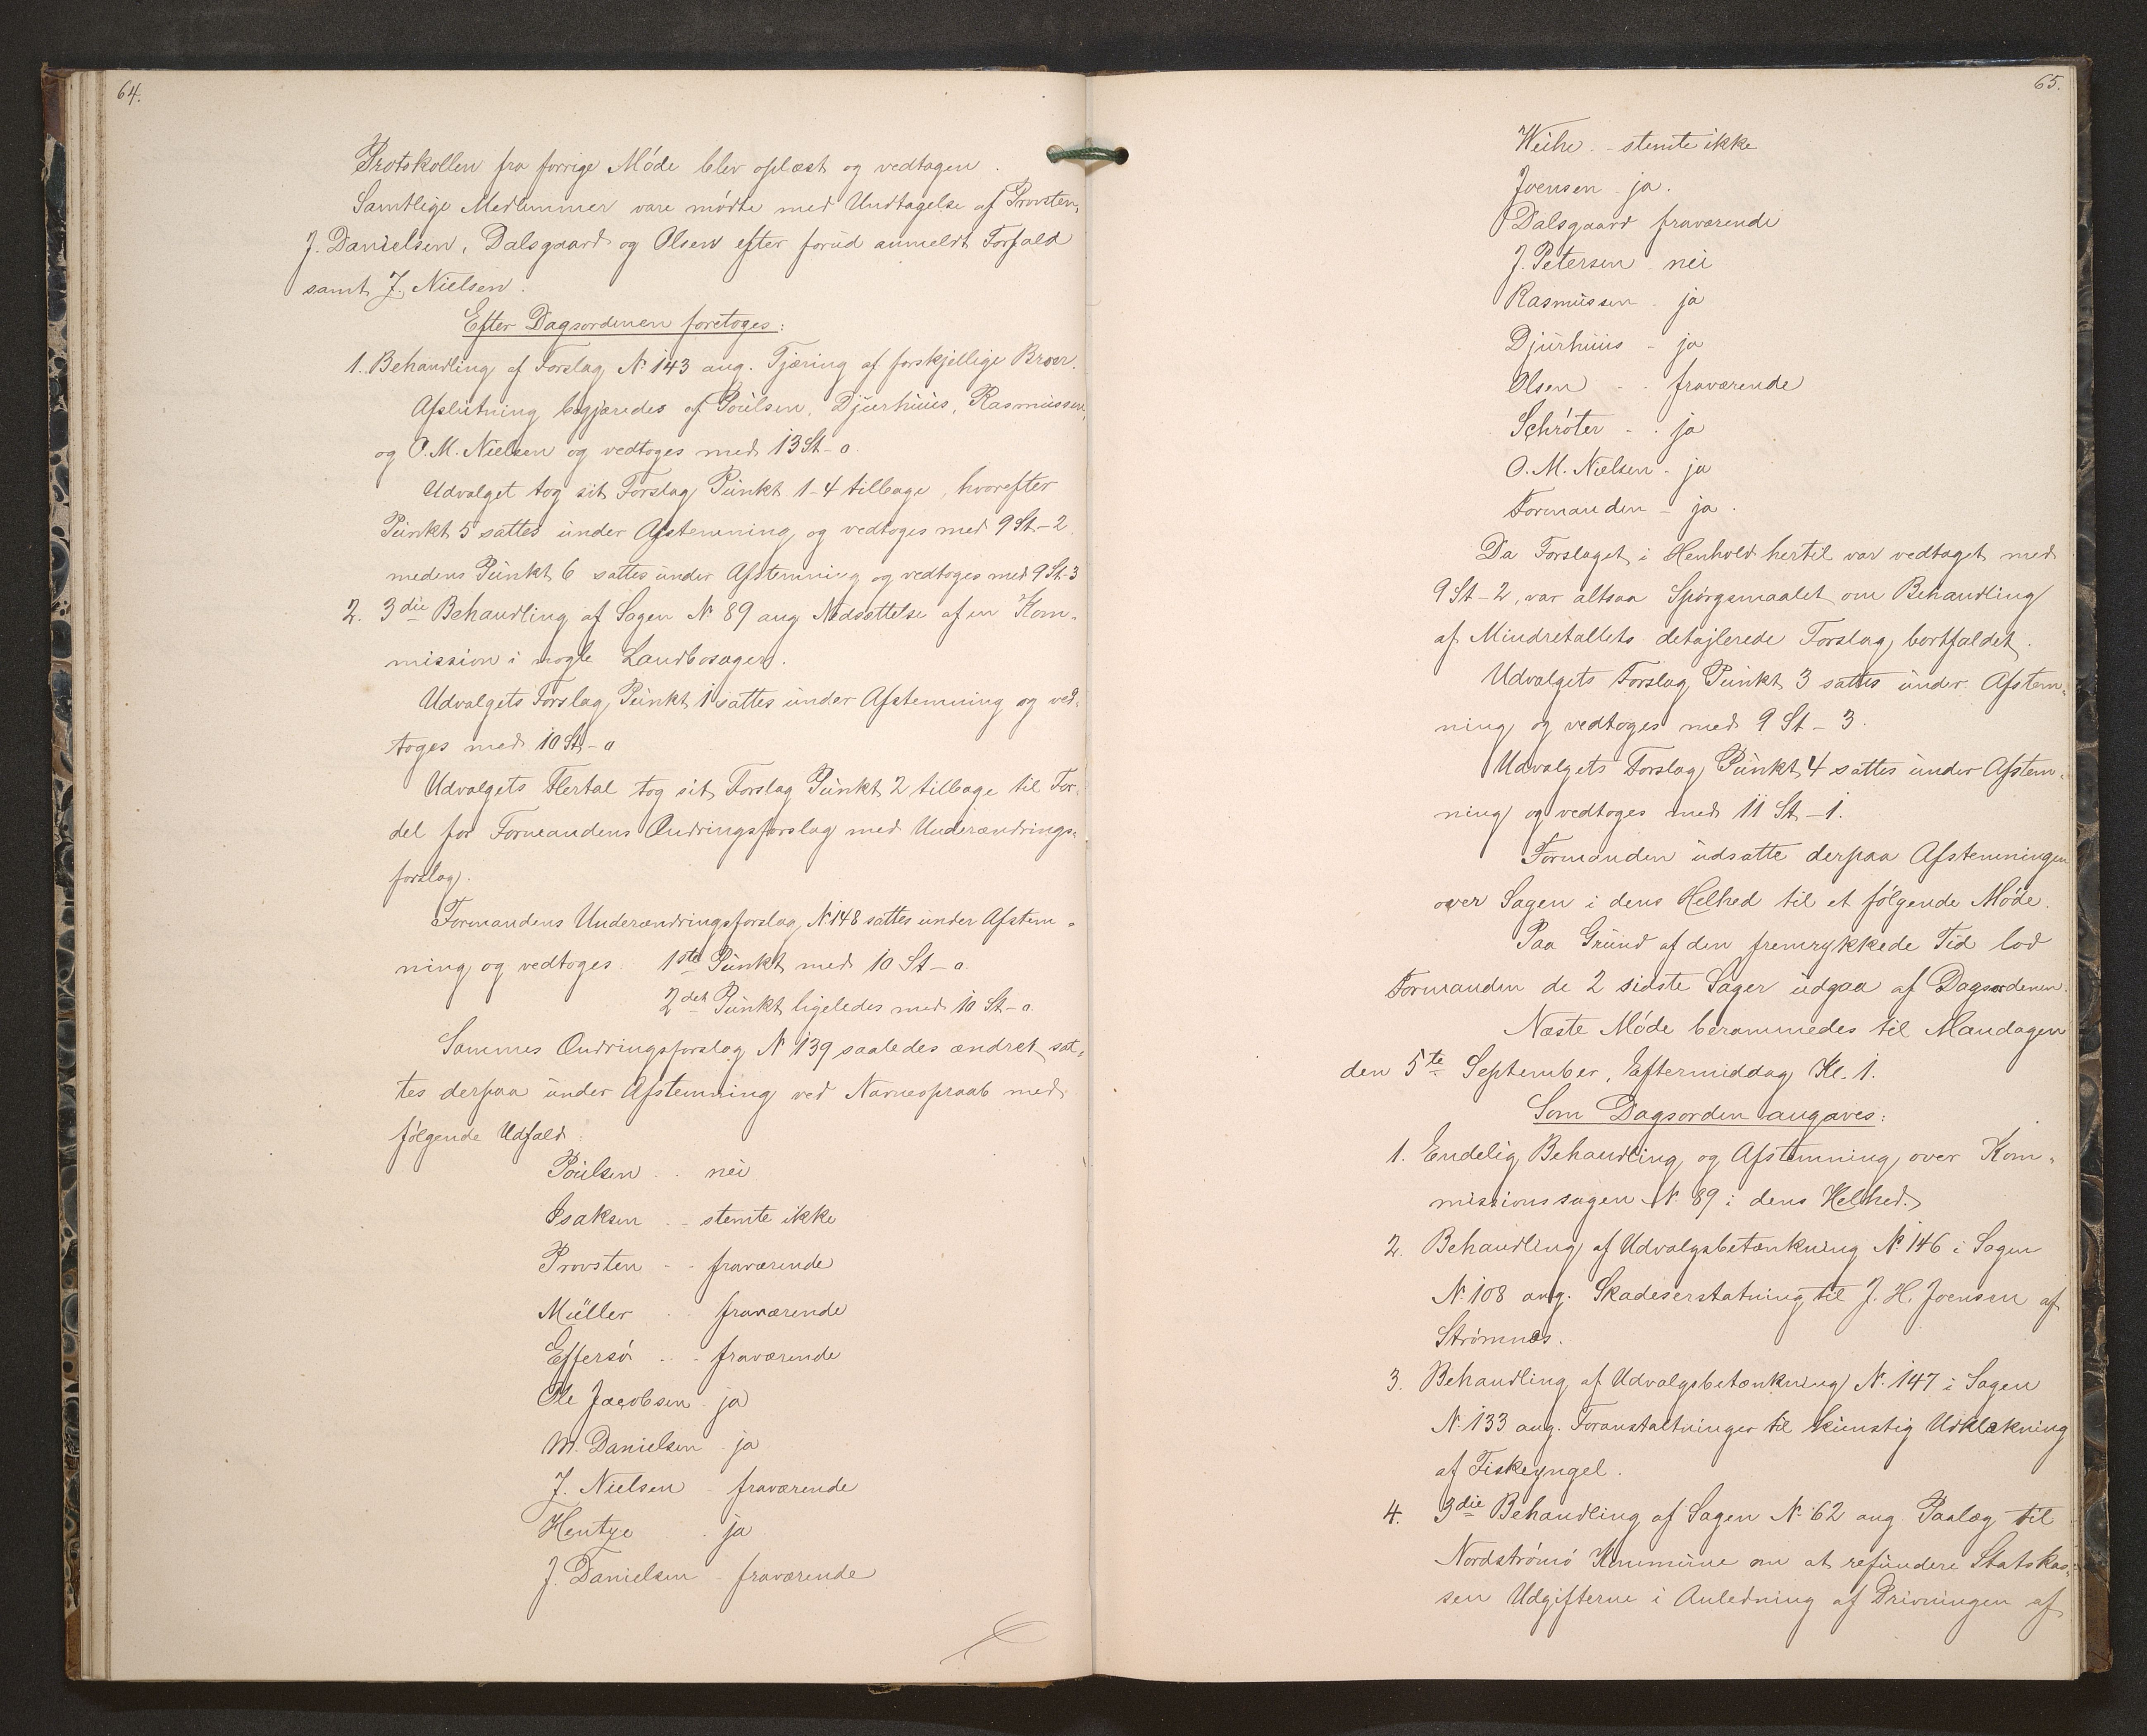 64.
Protokollen fra forrige Møde blev oplæst og vedtagen.
Samtlige Medlemmer vare mødte med Undtagelse af Provsten,
J. Danielsen, Dalsgaard og Olsen efter forud anmeldt Forfald
samt J. Nielsen.
Efter Dagsordenen foretoges:
1. Behandling af Forslag N. 143 ang. Tjæring af forskjellige Broer.
Afslutning begjæredes af Poulsen, Djurhuus, Rasmussen,
og O. M. Nielsen og vedtoges med 13 St - o.
Udvalget tog sit Forslag Punkt 1-4 tilbage, hvorefter
Punkt 5 sattes under Afstemning og vedtoges med 9 St - 2
medens Punkt 6 sattes under Afstemning og vedtoges med 9 St - 3
2. 3die Behandling af Sagen N. 89 ang Nedsættelse af en Kom-
mission i nogle Landbosager.
Udvalgets Forslag Punkt 1 sattes under Afstemning og ved-
toges med 10 St - o
Udvalgets Flertal tog sit Forslag Punkt 2 tilbage til For-
del for Formandens Ændringsforslag med Underændrings-
forslag.
Formandens Underændringsforslag N. 148 sattes under Afstem-
ning og vedtoges 1ste Punkt med 10 St - o.
2det Punkt ligeledes med 10 St - o.
Sammes Ændringsforslag N. 139 saaledes ændret sat-
tes derpaa under Afstemning ved Navneopraab med
følgende Udfald:
Poulsen - - nei
Isaksen - - stemte ikke
Provsten - - fraværende
Müller - - fraværende
Effersø - - fraværende
Ole Jacobsen - ja
M. Danielsen - ja
J. Nielsen - fraværende
Hentze - ja
J. Danielsen - fraværende
65.
Weihe - stemte ikke
Joensen - ja.
Dalsgaard fraværende
J. Petersen - nei
Rasmussen - ja
Djurhuus - ja
Olsen - - fraværende
Schrøter - - ja
O. M. Nielsen - ja
Formanden - ja.
Da Forslaget i Henhold hertil var vedtaget med
9 St - 2, var altsaa Spørgsmaalet om Behandling
af Mindretallets detajlerede Forslag bortfaldet.
Udvalgets Forslag Punkt 3 sattes under Afstem-
ning og vedtoges med 9 St - 3.
Udvalgets Forslag Punkt 4 sattes under Afstem-
ning og vedtoges med 11 St - 1.
Formanden udsatte derpaa Afstemningen
over Sagen i dens Helhed til et følgende Møde.
Paa Grund af den fremrykkede Tid lod
Formanden de 2 sidste Sager udgaa af Dagsordenen.
Næste Møde berammedes til Mandagen
den 5te September, Eftermiddag Kl. 1.
Som Dagsorden angaves:
1. Endelig Behandling og Afstemning over Kom-
missionssagen N. 89 i dens Helhed.
2. Behandling af Udvalgsbetænkning N. 146 i Sagen
N. 108 ang. Skadeserstatning til J. H. Joensen af
Strømnæs.
3. Behandling af Udvalgsbetænkning N. 147 i Sagen
N. 133 ang. Foranstaltninger til kunstig Udklækning
af Fiskeyngel.
4. 3die Behandling af Sagen N. 62 ang Paalæg til
Nordstrømø Kommune om at refundere Statskas-
sen Udgifterne i Anledning af Drivningen af